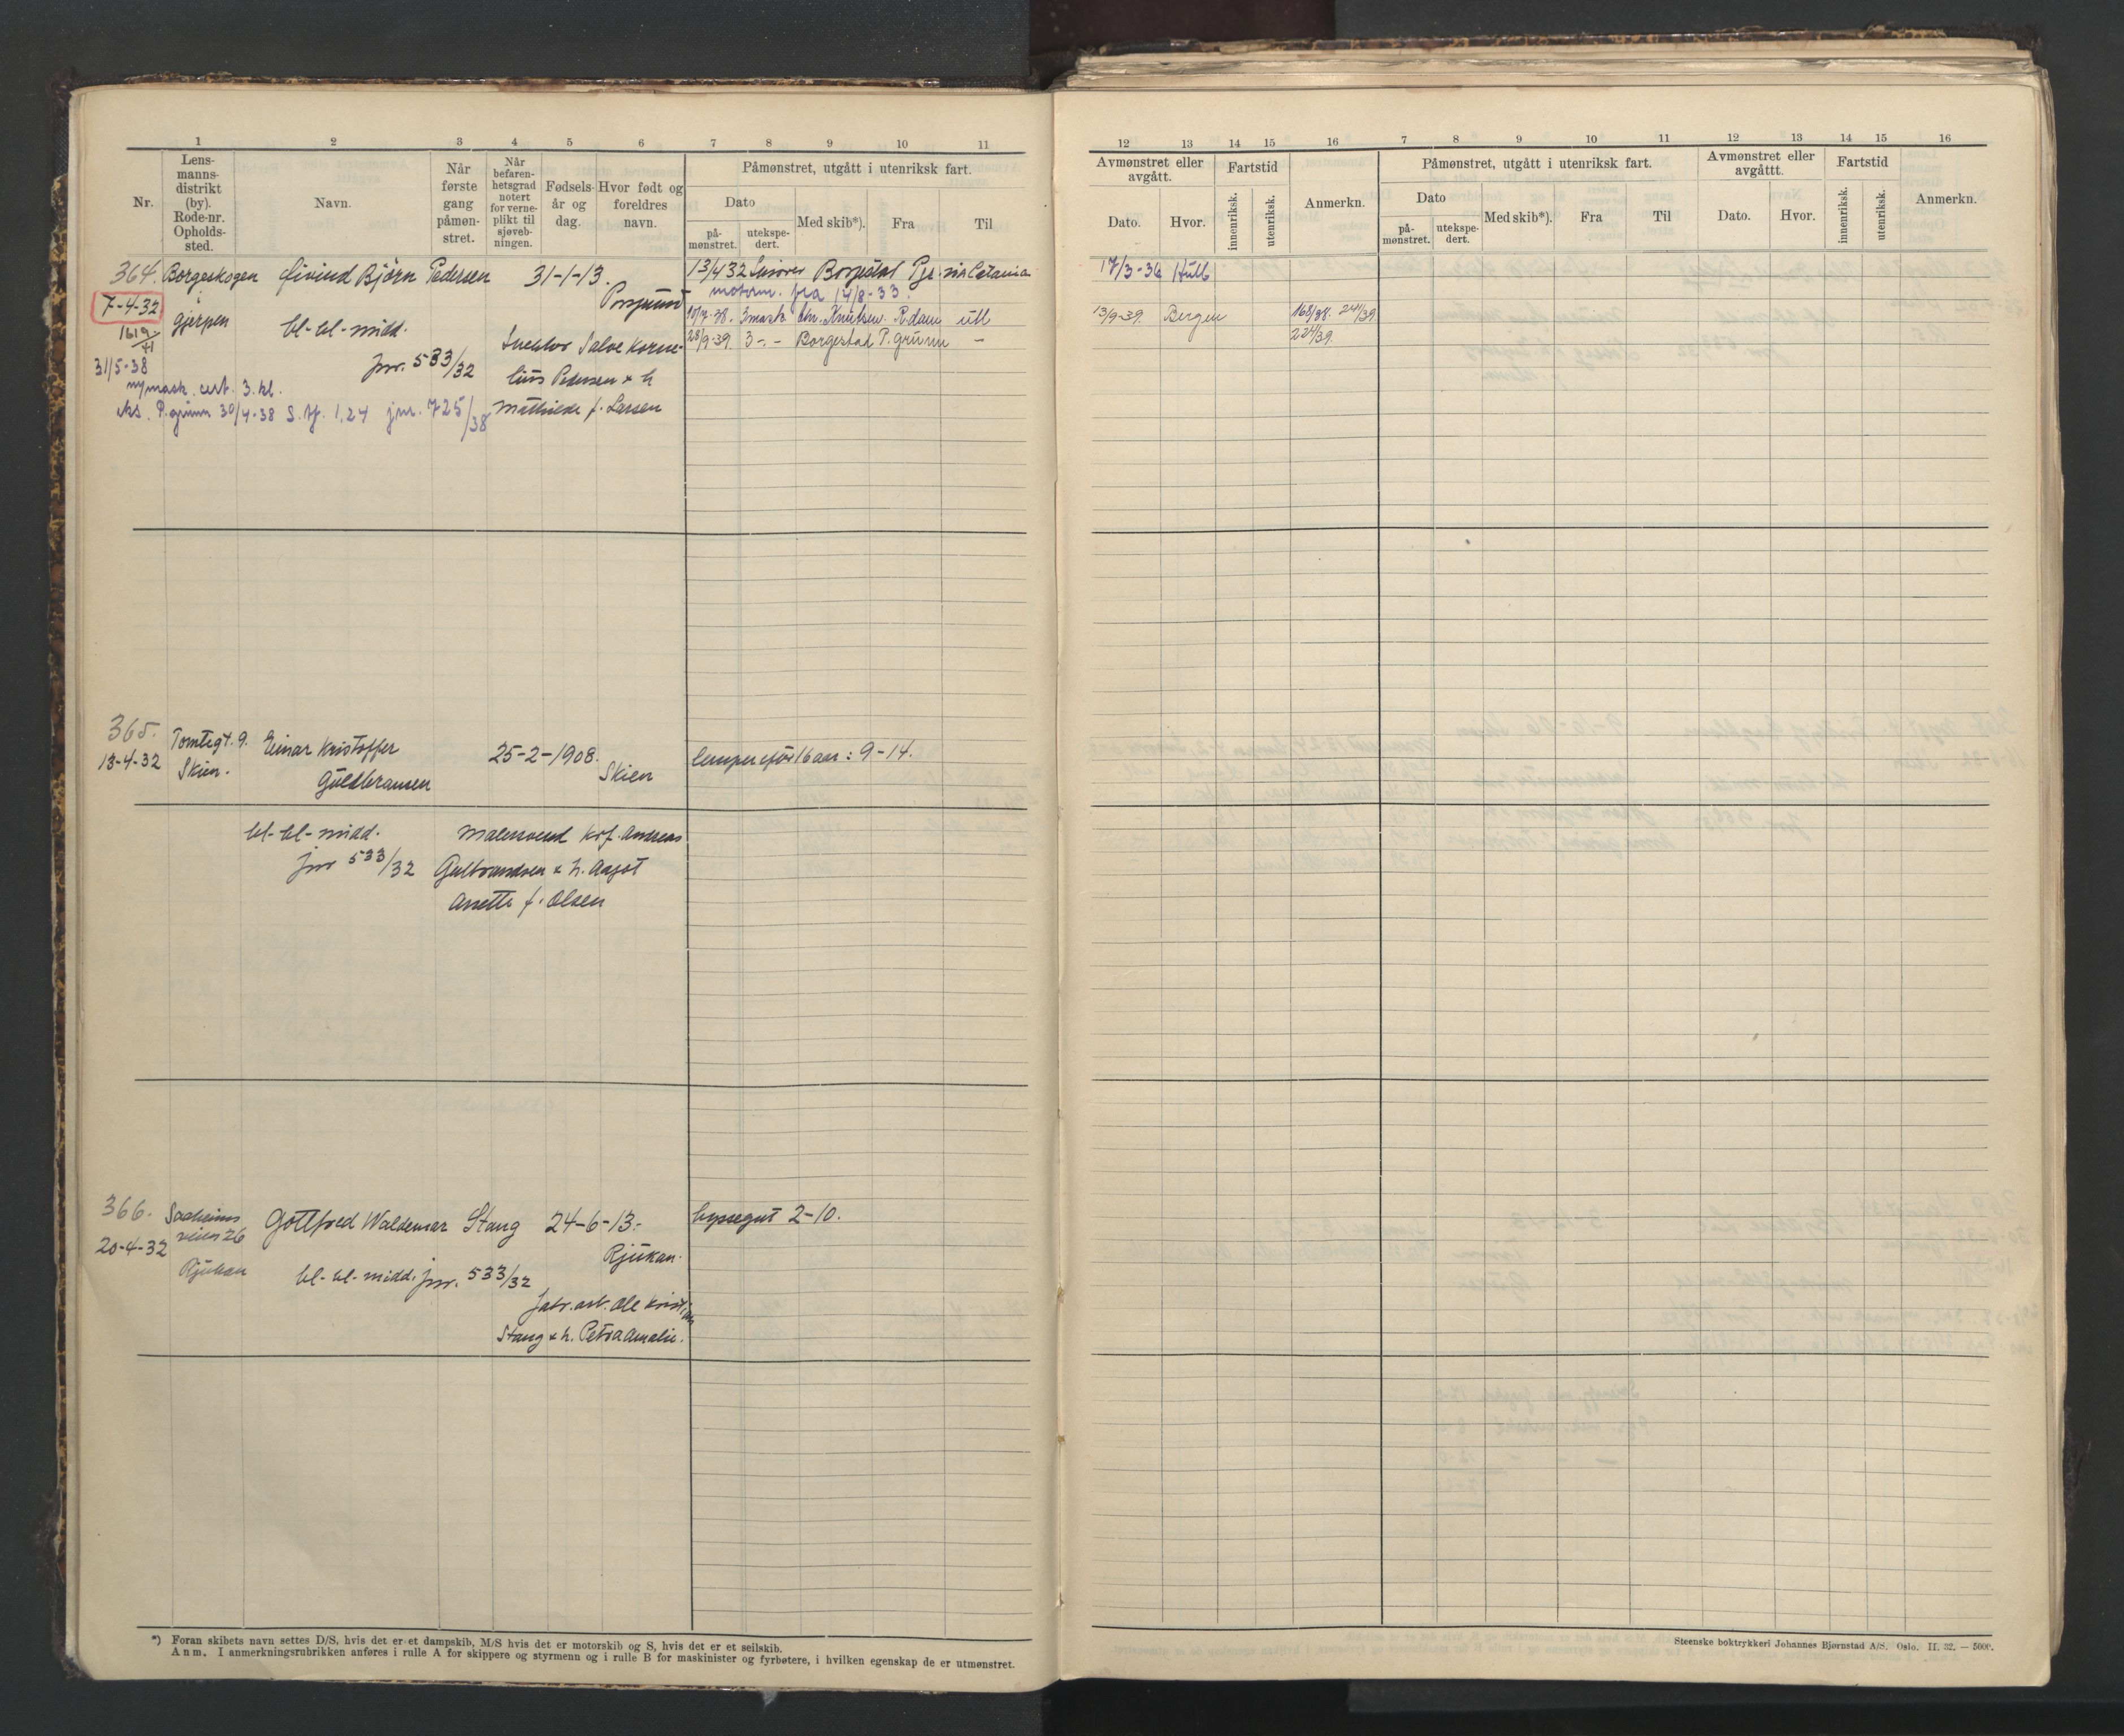 1 2 3 4 5 6 7 8 9 10 11
Nr.
Lens-
manns-
distrikt
(by).
Rode-nr.
Opholds-
sted.
Navn.
Når
første
gang
påmøn-
stret.
Når
befaren-
hetsgrad
notert
for verne-
plikt til
sjøveb-
ningen.
Fødsels-
år og
dag.
Hvor født og
foreldres
navn.
Påmønstret, utgått i utenriksk fart.
Dato
på-
mønstret.
utekspe-
dert.
Med skib*).
Fra
Til
364. Borgeskogen Øivind Bjørn Pedersen 31-1-13. 13/4 32 Borgestad
motorm. fra 14/8-33.
7-4-32 gjerpen Porsgrunn
bl-bl-midd.
10/7-38. 3 mask Chr. Knutsen. R.dam utl
28/9-39. 3-.- Borgestad P.grunn -
Salve Korne-
jnr. 533/32
lius Pedersen & h
31/5-38
ny mask. cert. 3. kl.
P.grunn 30/4-38 S. 1,24 jnr. 725/38
Mathilde f. Larsen
365. Tomtegt. 9. Einar Kristoffer 25-2-1908. lemper før 16 aar: 9-14.
13-4-32 Skien. Guldbransen Skien
bl-bl-midd. Malersvend Krf. Andreas
jnr 533/32 Gulbrandsen & h. Aagot
Anette f. Olsen
366. Saaheims Gottfred Waldemar Stang 24-6-13.- byssegut 2-10.
veien 26
20-4-32 Rjukan Rjukan.
bl-bl-midd. jnr. 533/32
fabr.arb. Ole Kristian
Stang & h. Petra Amalie.
*) Foran skibets navn settes D/S, hvis det er et dampskib, M/S hvis det er motorskib og S, hvis det er et seilskib.
Anm. I anmerkningsrubrikken anføres i rulle A for skippere og styrmenn og i rulle B for maskinister og fyrbøtere, i hvilken egenskap de er utmønstret.
12 13 14 15 16 7 8 9 10 11 12 13 14 15 16
Avmønstret eller
avgått.
Dato.
Hvor.
Fartstid
innenriksk.
utenriksk.
Anmerkn.
Påmønstret, utgått i utenriksk fart.
Dato
på-
mønstret.
utekspe-
dert.
Med skib*).
Fra
Til
Avmønstret eller
avgåttt.
Dato.
Hvor.
Fartstid
innenriksk.
utenriksk.
Anmerkn.
17/3-36 Hull
13/9-39. Bergen 168/38. 24/39.
224/39.
Steenske boktrykkeri Johannes Bjørnstad A/S. Oslo. II. 32. — 5000.